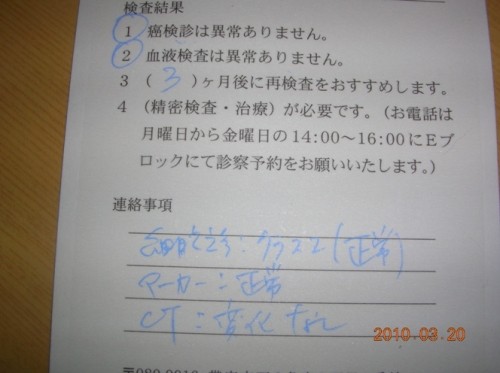 検査結果
1 癌検診は異常ありません。
2 血液検査は異常ありません。
3 ( 3 )ヶ月後に再検査をおすすめします。
4 (精密検査・治療)が必要です。(お電話は
月曜日から金曜日の14:00〜16:00にEブ
ロックにて診察予約をお願いいたします。)
連絡事項
細胞診:クラスⅡ(正常)
マーカー:正常
CT:変化なし
2010.03.20